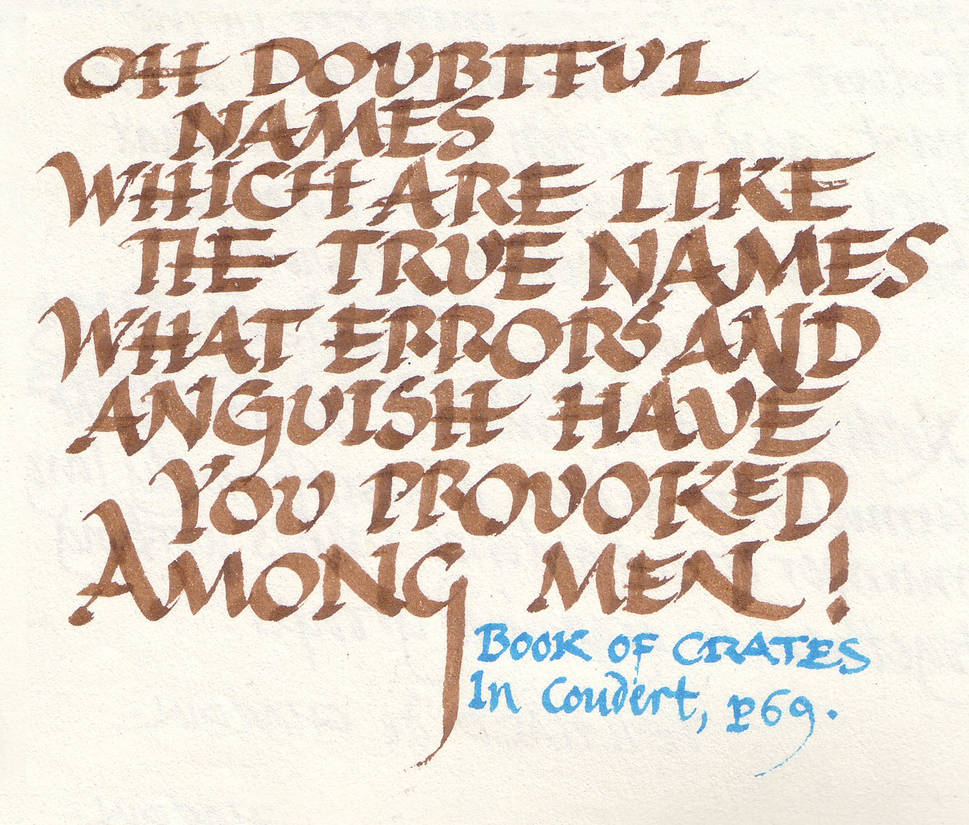 OH DOUBTFUL
NAMES
WHICH ARE LIKE
THE TRUE NAMES
WHAT ERRORS AND
ANGUISH HAVE
YOU PROVOKED
AMONG MEN!
BOOK OF CRATES
In Coudert, p69.